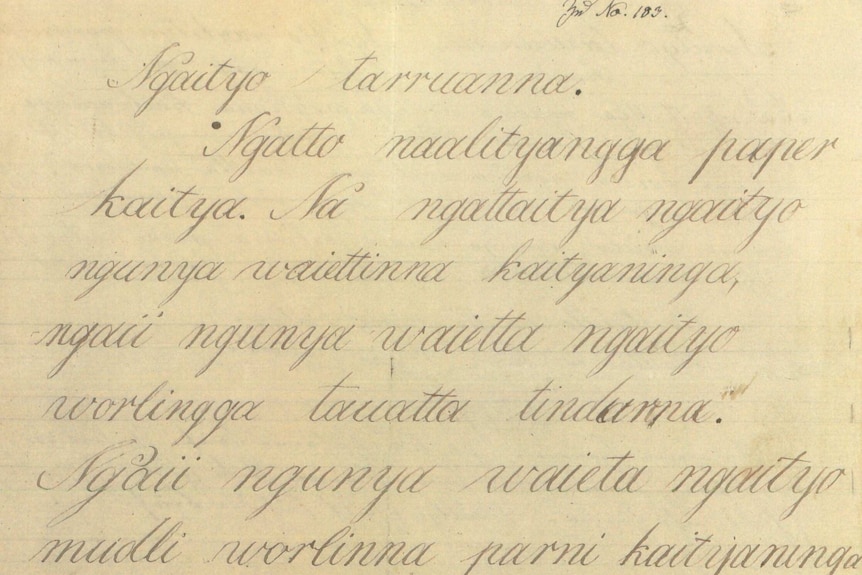 No. 183.
Ngaityo tarruanna.
Ngatto naalityangga paper
kaitya. Na ngattaitya ngaityo
ngunya waiettinna kaityaninga,
ngaii ngunya waietta ngaityo
worlingga tauatta tindurna.
Ngaii ngunya waieta ngaityo
mudli worlinna parni kaityaninga